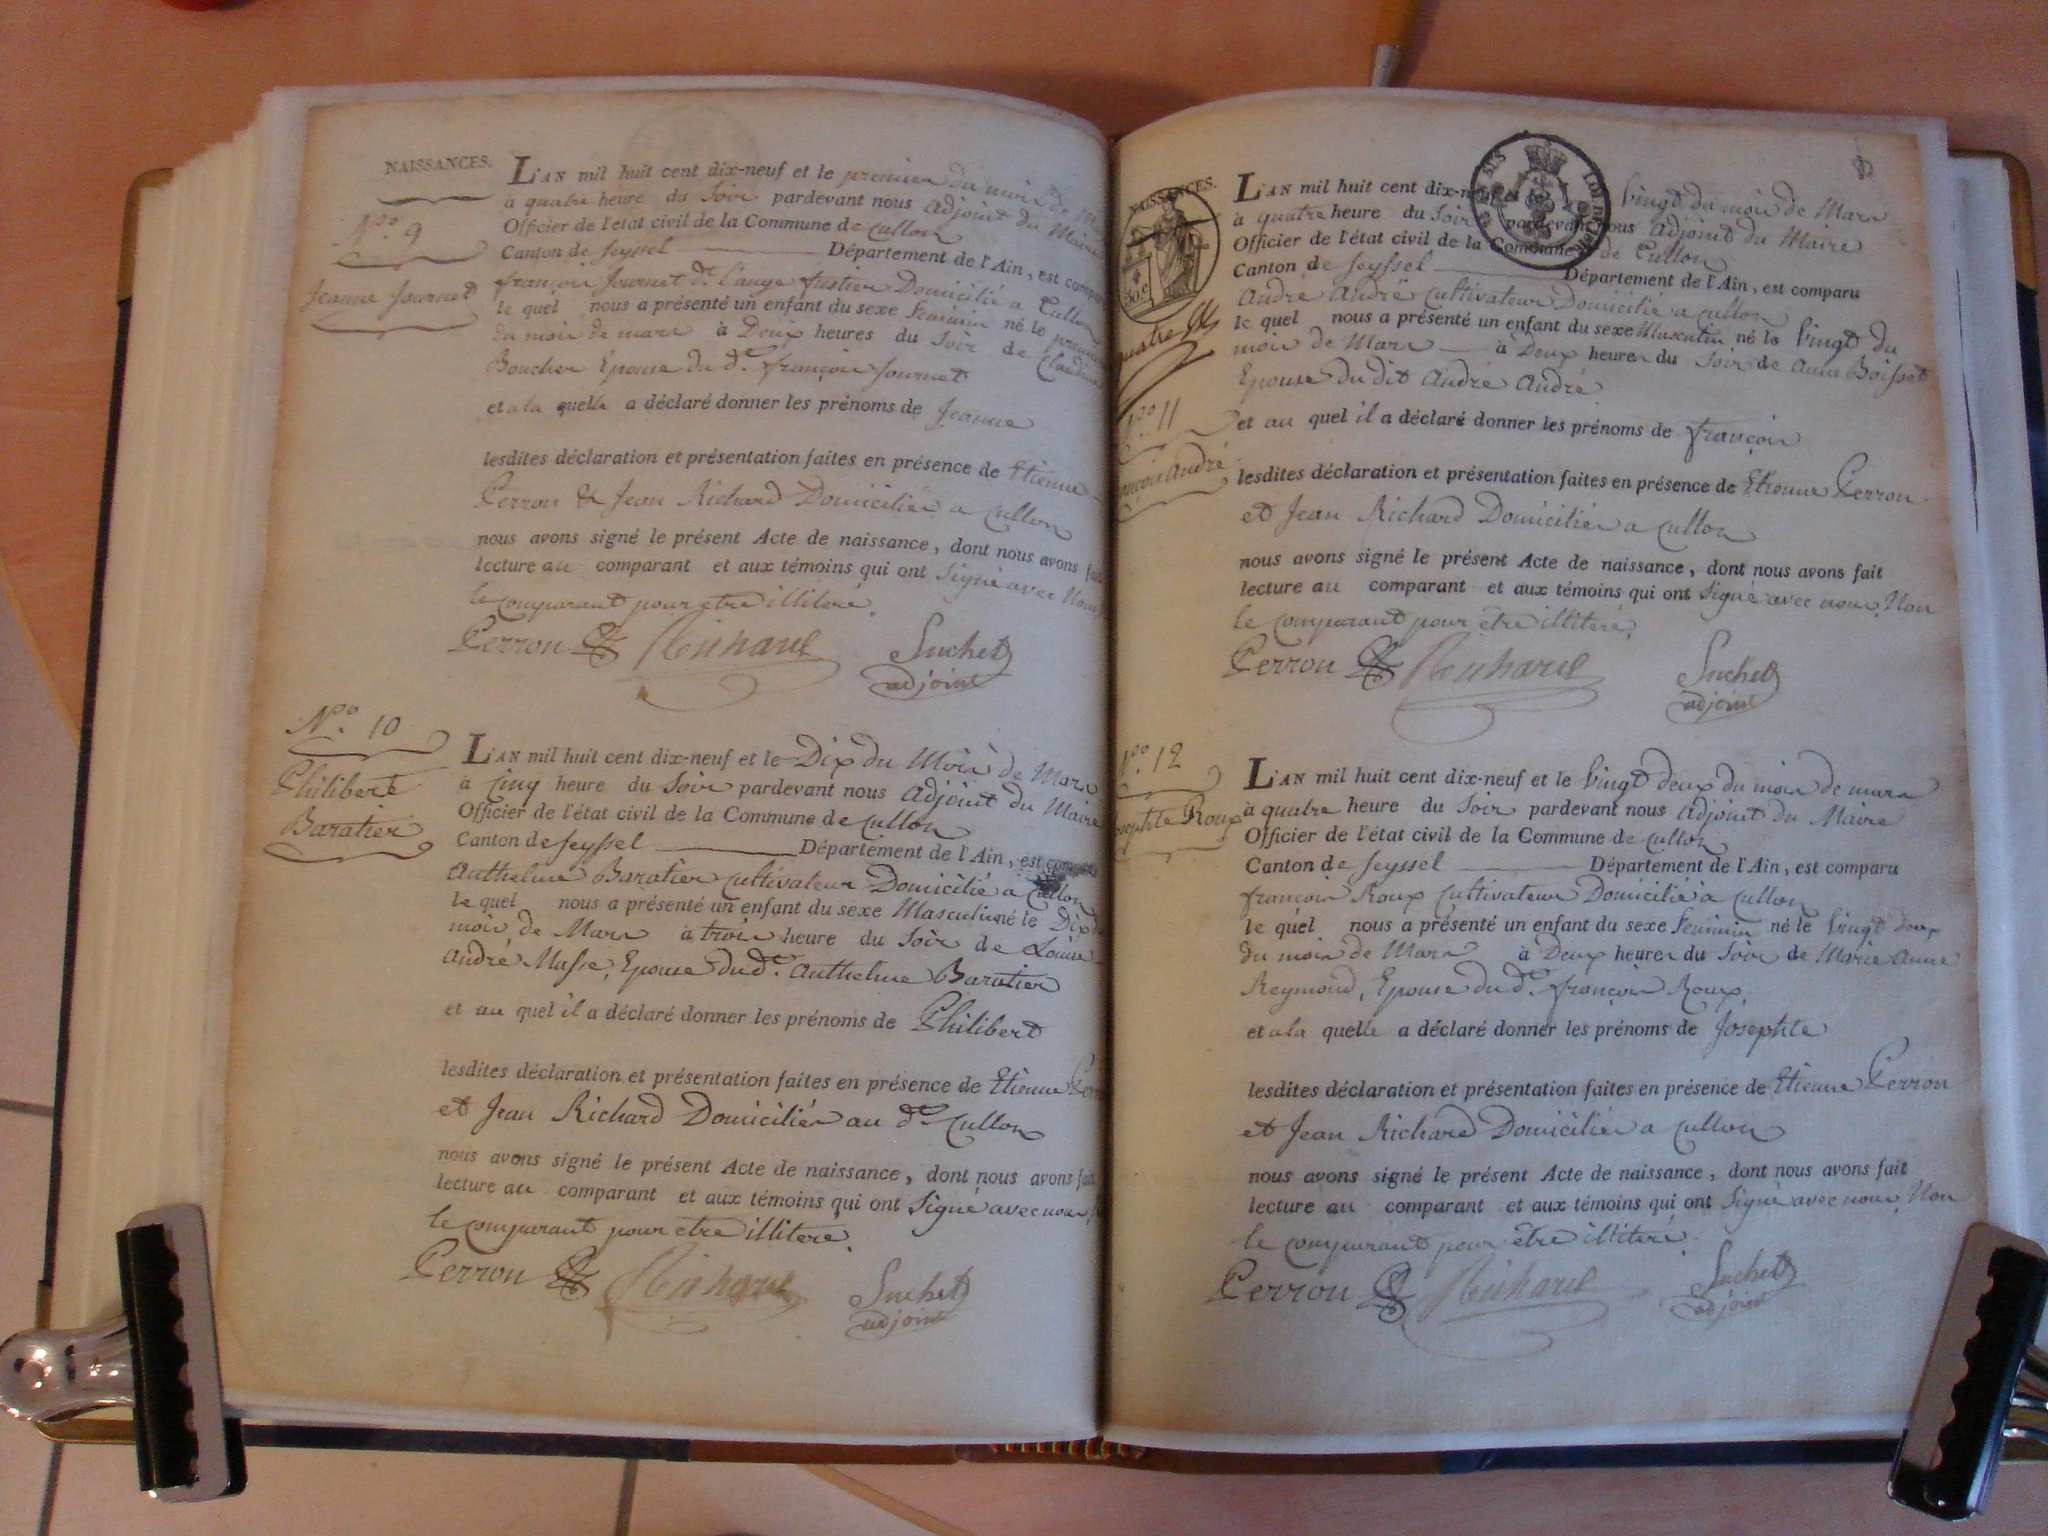 NAISSANCES.
L'AN mil huit cent dix-neuf et le premier du mois de
à quatre heure du Soir pardevant nous adjoint du Maire
Officier de l'état civil de la Commune de Cullon
Canton de Seyssel Département de l'Ain, est comparu
françois Journet dt. l'ange fustier Domicilié a Cullon
le quel nous a présenté un enfant du sexe Feminin né le premier
du mois de mars à Deux heures du Soir de Claudine
Boucher Epouse du dt. françois Journet
et a la quelle a déclaré donner les prénoms de Jeanne
lesdites déclaration et présentation faites en présence de Etienne
Perron & Jean Richard Domiciliés a Cullon
nous avons signé le présent Acte de naissance, dont nous avons fait
lecture au comparant et aux témoins qui ont Signé avec Nous
le comparant pour etre illiteré.
Perron Richard Suchet
adjoint
N°. 9
Jeanne Journet
N°. 10
Philibert
Baratier
L'AN mil huit cent dix-neuf et le Dix du Mois de Mars
à Cinq heure du Soir pardevant nous adjoint du Maire
Officier de l'état civil de la Commune de Cullon
Canton de Seyssel Département de l'Ain, est comparu
Anthelme Baratier Cultivateur Domicilié a Cullon
le quel nous a présenté un enfant du sexe Masculin né le Dix
mois de Mars à trois heure du Soir de Louise
André Masse, Epouse du dt. Anthelme Baratier
et au quel il a déclaré donner les prénoms de Philibert
lesdites déclaration et présentation faites en présence de Etienne
et Jean Richard Domiciliés au dt Cullon
nous avons signé le présent Acte de naissance, dont nous avons fait
lecture au comparant et aux témoins qui ont Signé avec nous
le comparant pour etre illiteré.
Perron Richard Suchet
adjoint
NAISSANCES.
L'AN mil huit cent dix-neuf et le Vingt du mois de Mars
à quatre heure du Soir pardevant nous Adjoint du Maire
Officier de l'état civil de la Commune de Cullon
Canton de Seyssel Département de l'Ain, est comparu
André André Cultivateur Domicilié a Cullon
le quel nous a présenté un enfant du sexe Masculin né le Vingt du
mois de Mars à Deux heures du Soir de Anna Boisset
Epouse du dit André André
et au quel il a déclaré donner les prénoms de françois
lesdites déclaration et présentation faites en présence de Etienne Perron
et Jean Richard Domiciliés a Cullon
nous avons signé le présent Acte de naissance, dont nous avons fait
lecture au comparant et aux témoins qui ont Signé avec nous, Non
le comparant pour être illiteré.
Perron Richard Suchet
adjoint
11
André
12
Roux
L'AN mil huit cent dix-neuf et le Vingt deux du mois de mars
à quatre heure du Soir pardevant nous Adjoint du Maire
Officier de l'état civil de la Commune de Cullon
Canton de Seyssel Département de l'Ain, est comparu
françois Roux Cultivateur Domicilié à Cullon
le quel nous a présenté un enfant du sexe Feminin né le Vingt deux
du mois de Mars à Deux heures du Soir de Marie Anne
Reymond, Epouse du dt. françois Roux,
et a la quelle a déclaré donner les prénoms de Josephte
lesdites déclaration et présentation faites en présence de Etienne Perron
et Jean Richard Domiciliés a Cullon
nous avons signé le présent Acte de naissance, dont nous avons fait
lecture au comparant et aux témoins qui ont Signé avec nous, Non
le comparant pour être illiteré.
Perron Richard Suchet
adjoint